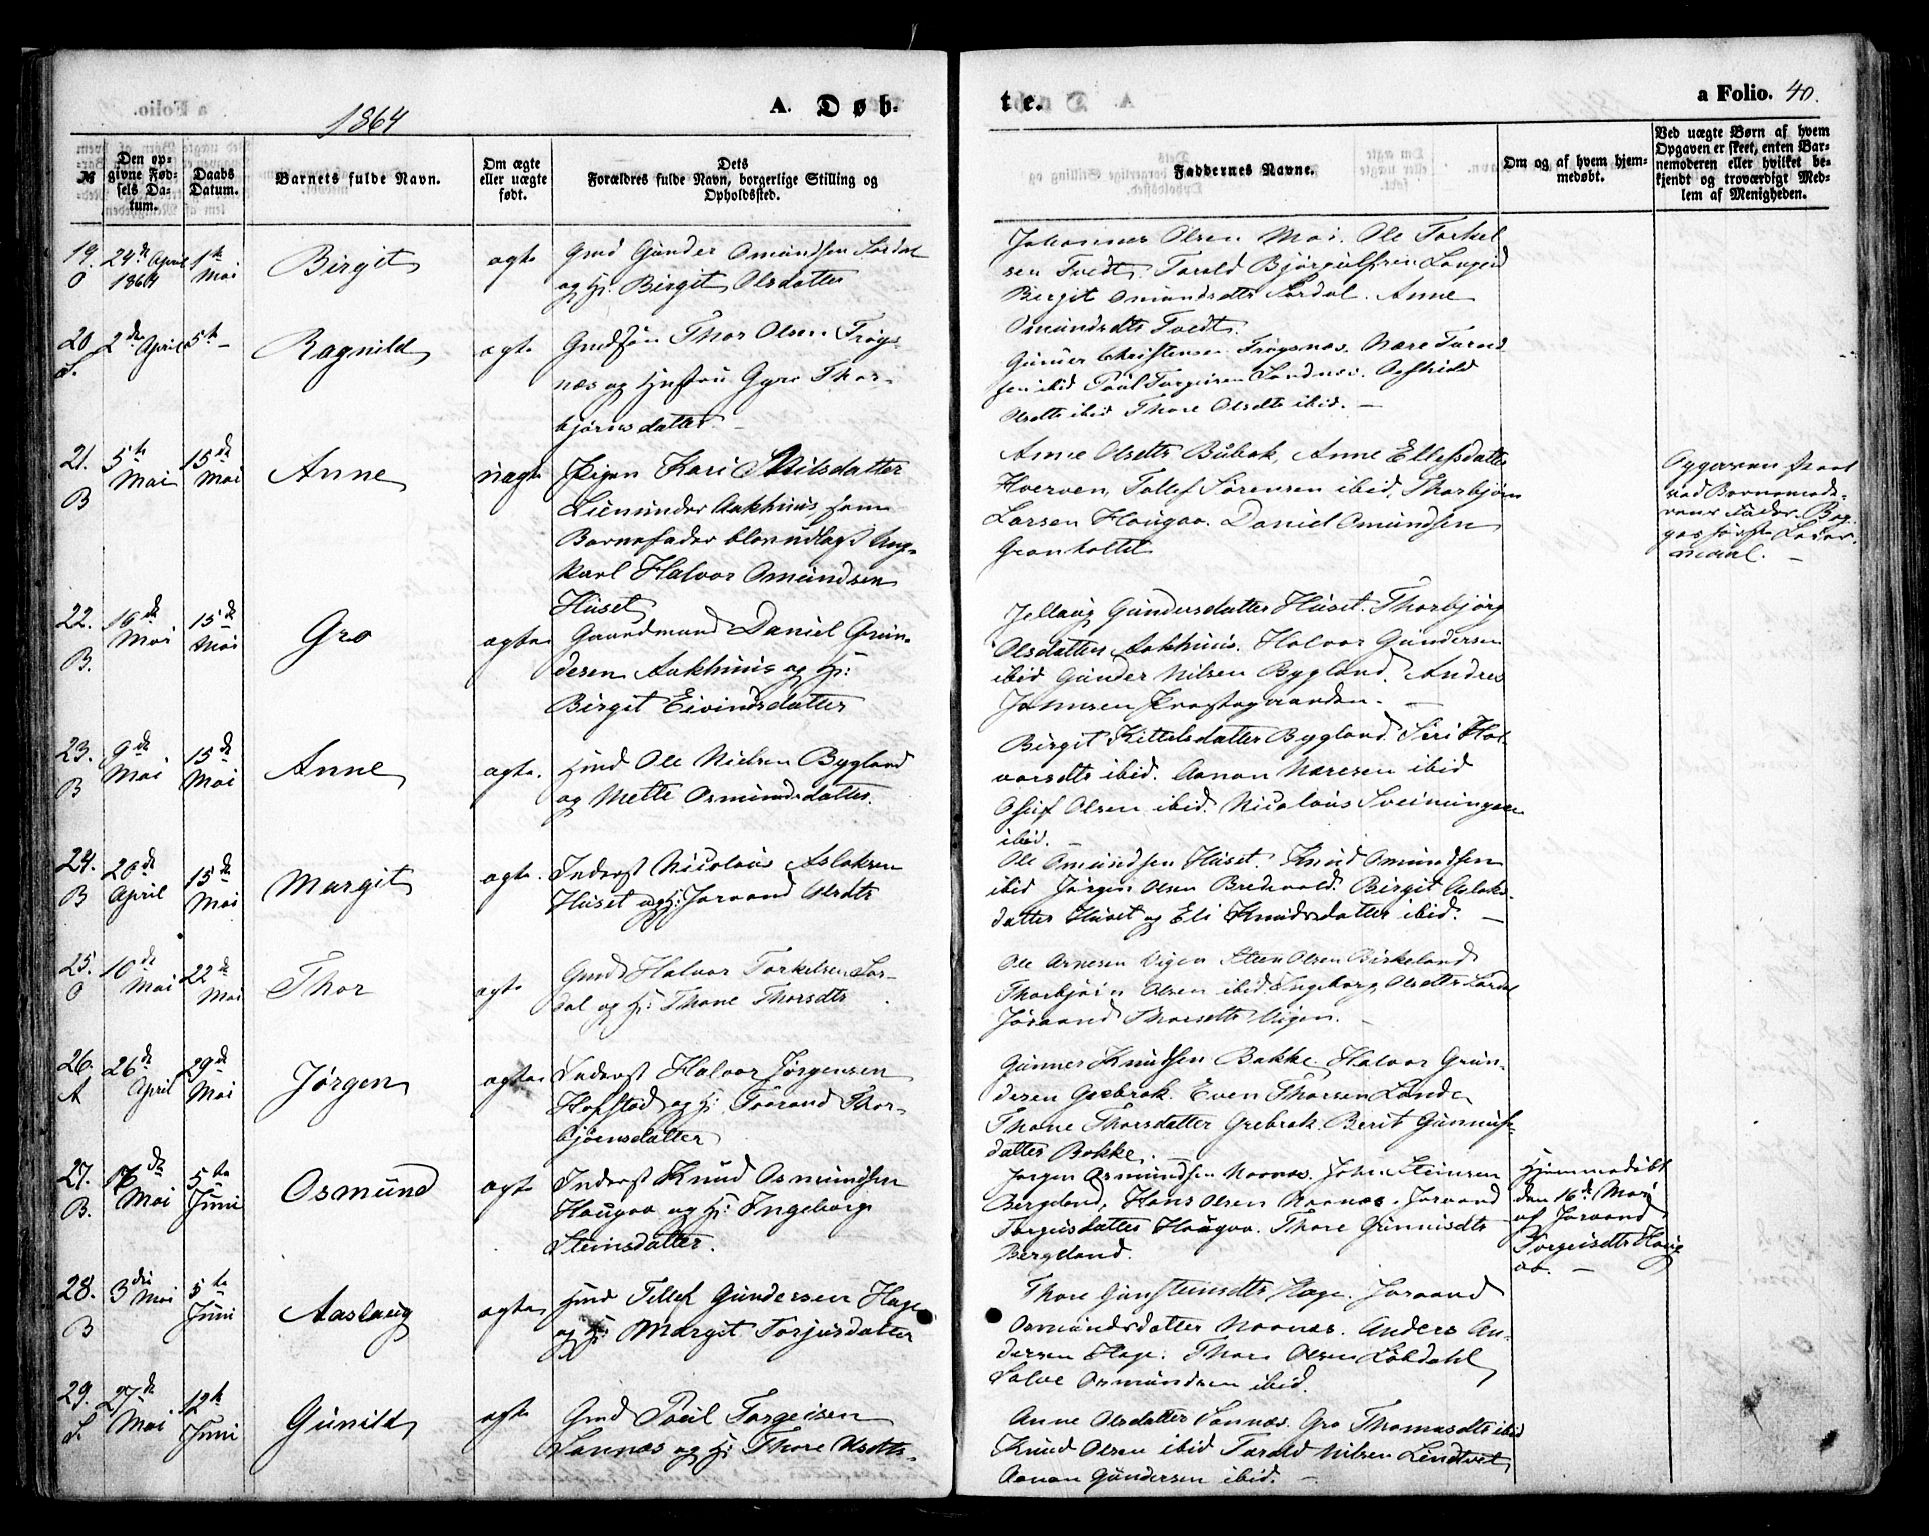 1864
A. Døb-
te.
a Folio. 40.
№
Den opgivne Fødsels Datum.
Daabs Datum.
Barnets fulde Navn.
Om ægte eller uægte født.
Dets Forældres fulde Navn, borgerlige Stilling og Opholdssted.
Faddernes Navne.
Om og af hvem hjemmedøbt.
Ved uægte Børn af hvem Opgaven er skeet, enten Barnemoderen eller hvilket bekjendt og troværdigt Medlem af Menigheden.
19. 24de April 1ste Birgit ægte Gmd Gunder Omundsen Sordal
O 1864 Mai og H: Birgit Olsdatter
Johannes Olsen Moi. Ole Torkel
sen Tvedt. Tarald Bjørgulfsen Langeid
Birgit Omundsdtr Sordal. Anne
Omundsdtr Tvedt.
20 2de April 5te Ragnild ægte Thor Olsen Trøgs
S. næs og Hustru Gyro Thor-
bjørnsdatter
Gunner Christensen Trøgsnæs. Nære Tarald
sen ibid Poul Torgeisen Sandnæs. Aashild
Olsdtr ibid Thore Olsdtr ibid. —
21. 5te Mai 15de Mai Anne uægte Pigen Kari Nilsdatter
B Lien under Aakhuus, som
Barnefader blev udlagt Ung-
karl Halvor Omundsen
Huset
Anne Olsdtr Bubak, Anne Ellefsdatter
Hverven, Tollef Sørensen ibid, Thorbjørn
Larsen Haugaa. Daniel Omundsen
Granholtet
22. 16de Mai 15de Mai Gro ægte Gaardmand Daniel Gun-
B. dersen Aakhuus og H:
Birgit Eivindsdatter
Jellaug Gundersdatter Huset. Thorbjørg
Olsdatter Aakhuus. Halvor Gundersen
ibid Gunder Nilsen Bygland. Andres
Johnsen Præstegaarden. —
23. 9de Mai 15de Mai Anne ægte. Gmd Ole Nielsen Bygland
B og Mette Osmundsdatter.
Birgit Kittelsdatter Bygland. Siri Hal
vorsdtr ibid. Aanon Næresen ibid
Osuf Olsen ibid. Nicolaus Sveinungsen
ibid. —
24. 20de April 15de Mai Margit ægte. Inderst Nicolaus Aslaksen
B Huset og H: Joraand Olsdtr
Ole Omundsen Huset. Knud Omundsen
ibid Jørgen Olsen Bredvold. Birgit Aslaks-
datter Huset og Eli Knudsdatter ibid. —
25. 10de Mai 22de Mai Thor ægte Gmd Halvor Torkelsen Sor-
O dal og H: Thone Thorsdtr
Ole Arnesen Vigen Steen Olsen Birkeland
Thorbjørn Olsen ibid. Ingeborg Olsdtr Sordal
Joraand Thorsdtr Vigen. —
26. 26de April 29de Mai Jørgen ægte Inderst Halvor Jørgensen
A Hofstad og H: Joraand Thor-
bjørnsdatter
Gunner Knudsen Bakke. Halvor Gun-
dersen Grebrok. Even Thorsen Lande
Thone Thorsdatter Grebrok. Berit Gunnufs-
datter Bakke. —
27. 16de Mai 5te Juni Osmund ægte Inderst Knud Osmundsen
B. Haugaa og H: Ingeborg
Steinsdatter.
Jørgen Osmundsen Noonæs. John Steinsen
Bergland, Hans Olsen Noonæs. Joraand
Torgeisdatter Haugaa. Thore Gunnuisdtr
Bergland.
Hjemmedøbt
den 16de Mai
af Joraand
Torgeisdtr Haug
aa. —
28. 3die Mai 5te Juni Aaslaug ægte Gmd Tellef Gundersen Hage
B og H: Margit Torjusdatter
Thore Gunsteinsdtr Hage. Joraand
Osmundsdatter Noonæs. Anders An-
dersen Hage. Thore Olsen Løbdahl
Salve Osmundsen ibid.
29. 27de Mai 12te Juni Gunild ægte Gmd Poul Torgeisen
S. Sannæs og H: Thore Olsdtr.
Anne Olsdatter Sannæs. Gro Thomasdtr ibid
Knud Olsen ibid Tarald Nilsen Lindtvet
Aanon Gundersen ibid. —